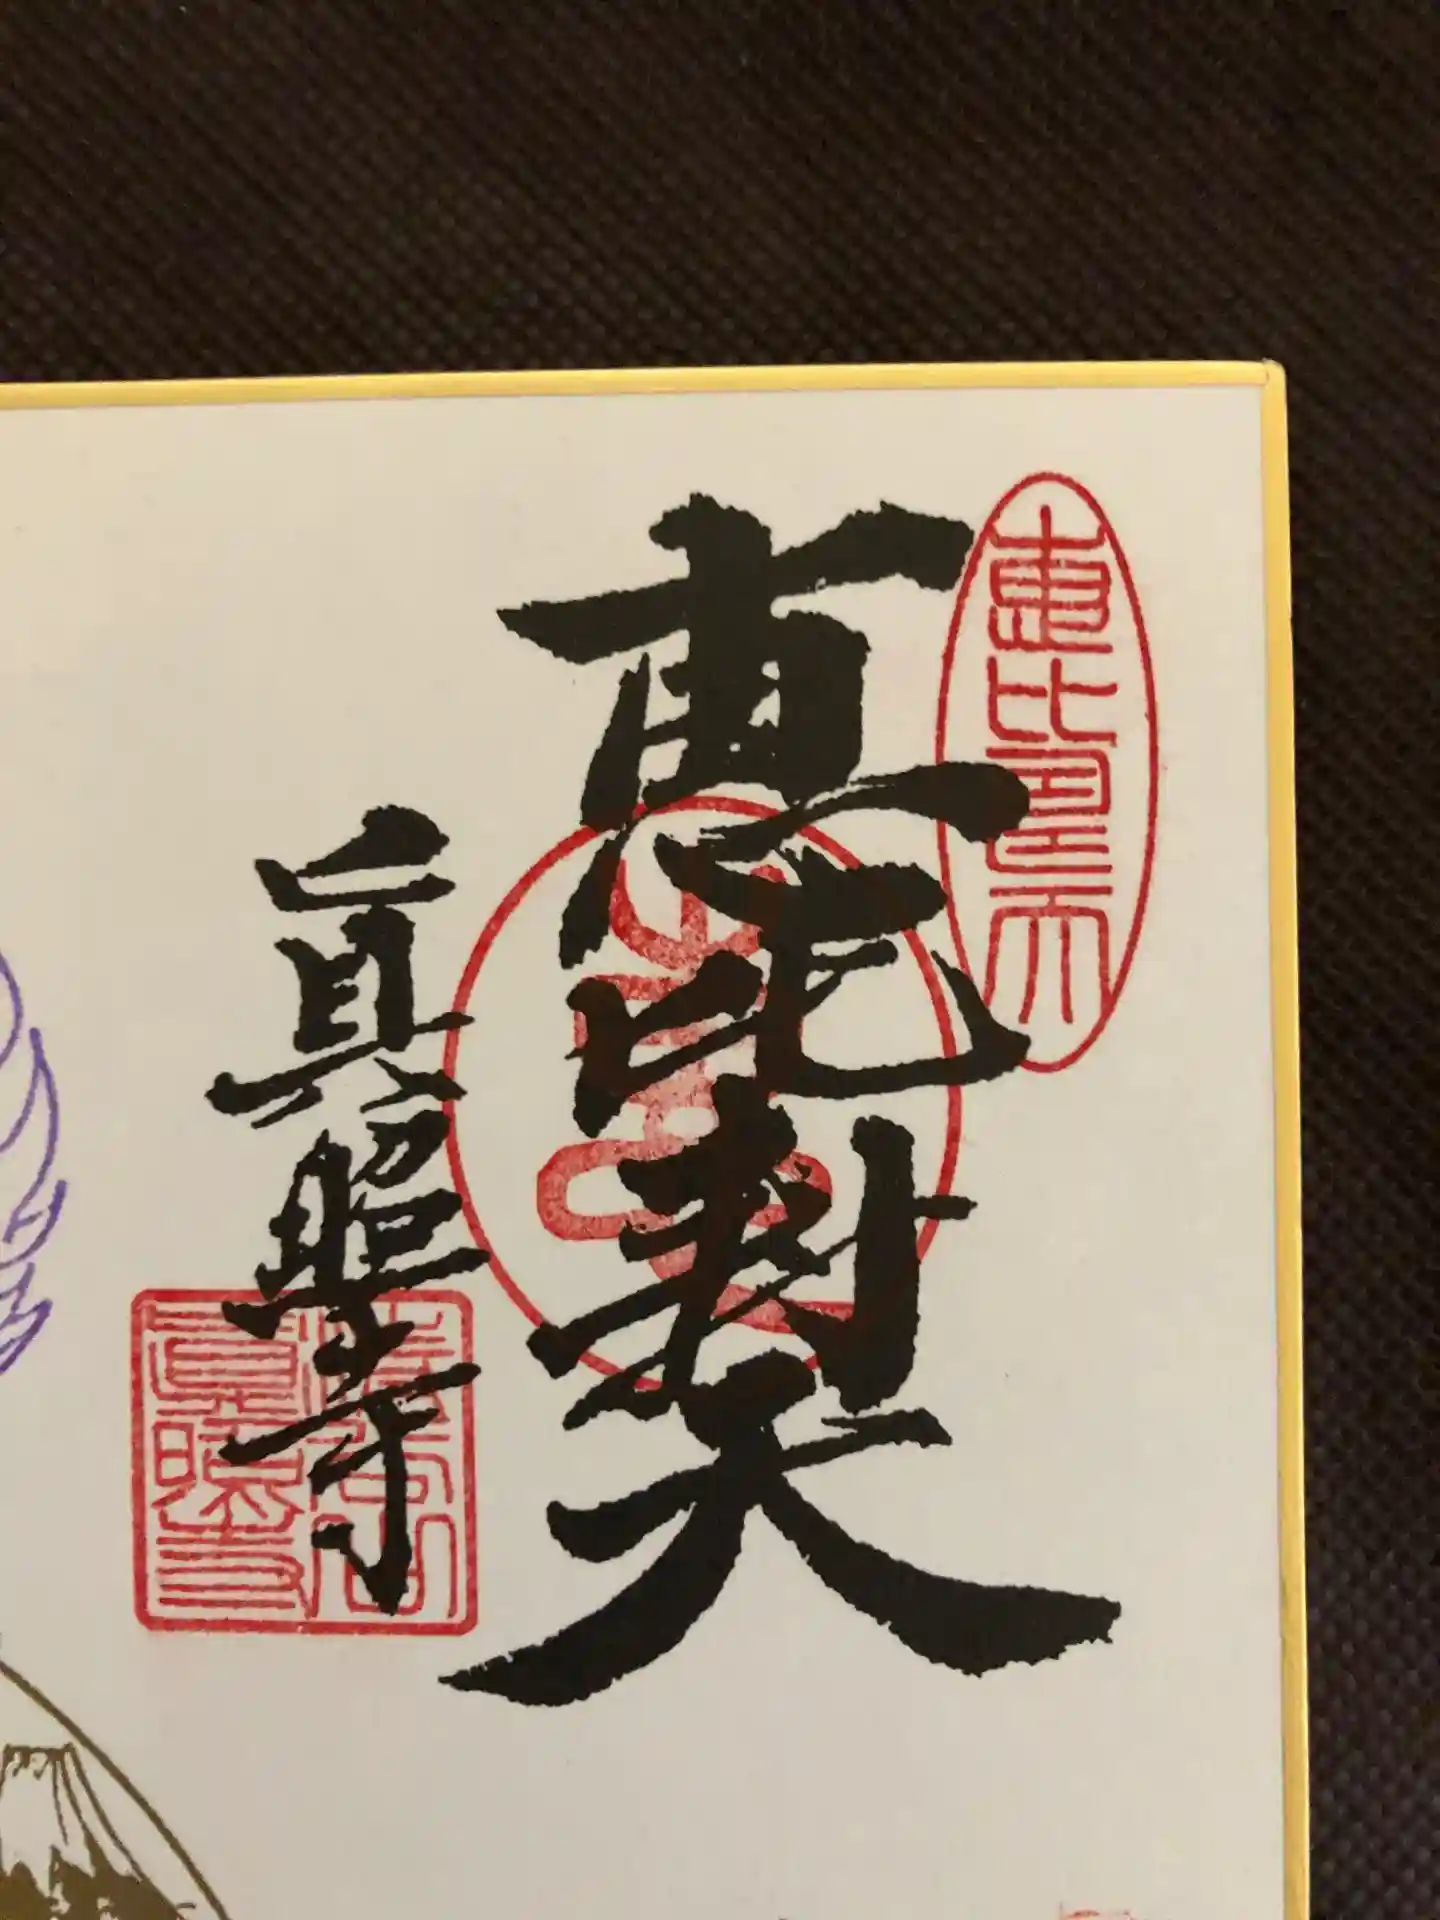 恵比寿天
恵比寿天
真照寺
真照寺